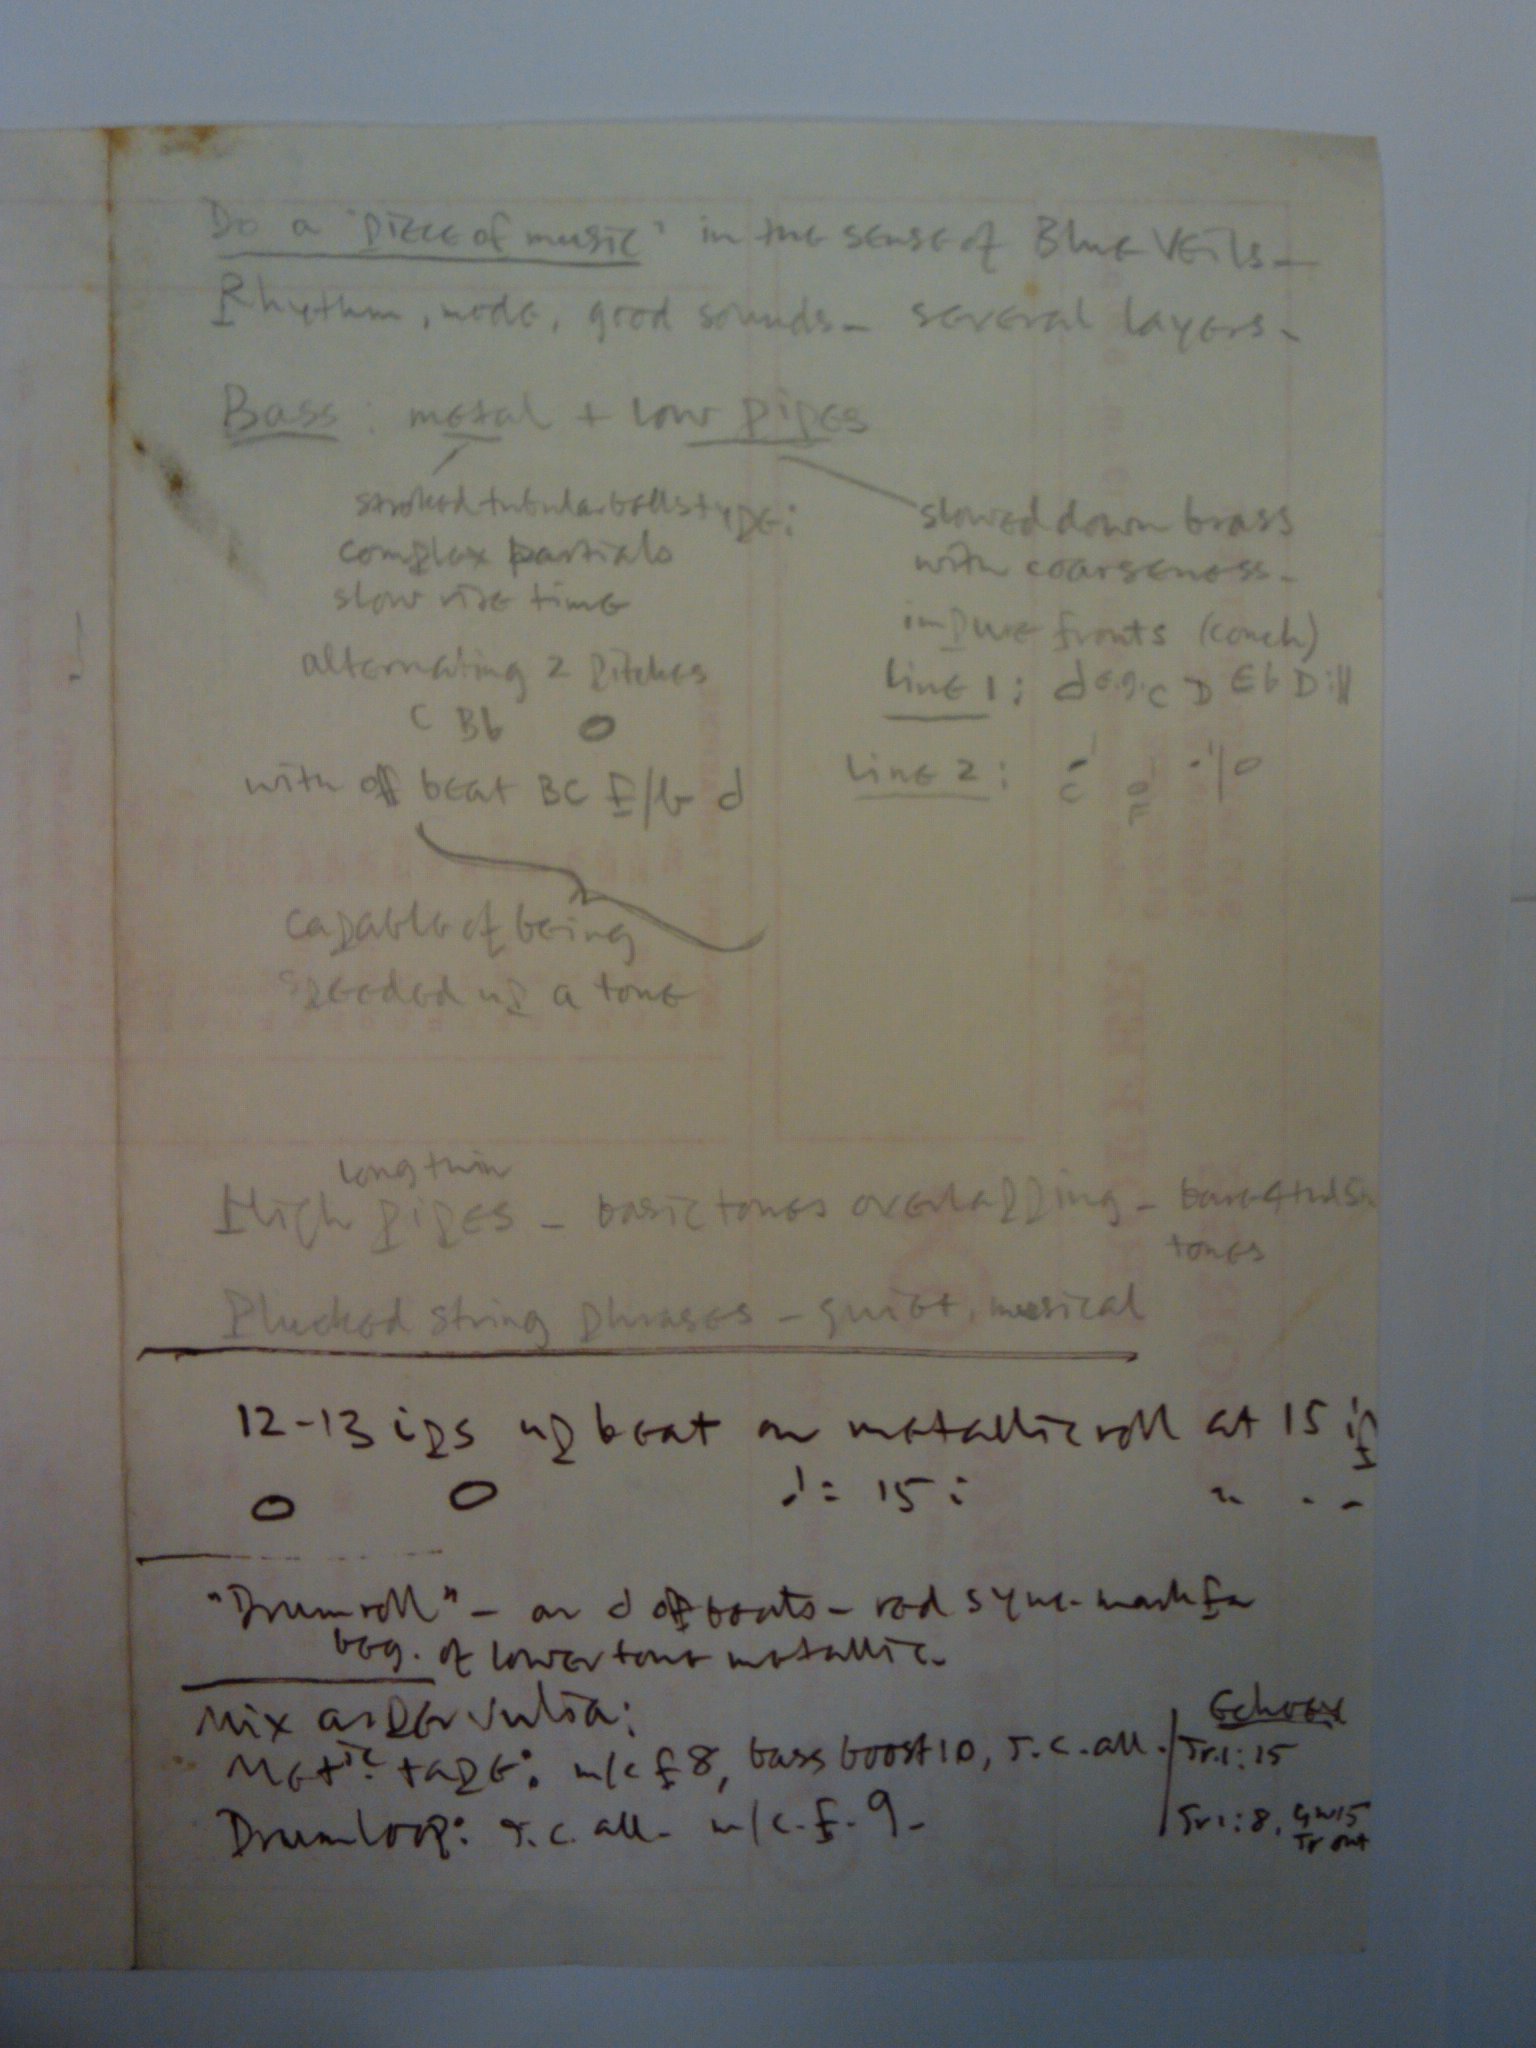 Do a "piece of music" in the sense of Blue Veils—
Rhythm, mode, good sounds— several layers—
Bass: metal + low pipes
stroked tubular bells type:
complex partials
slow rise time
alternating 2 pitches
C Bb
with off beat BC
capable of being
speeded up a tone
slowed down brass
with coarseness—
impure fronts (conch)
Line 1: e.g. C D Eb D
Line 2:
C F
long thin
High pipes — basic tones overlapping — bare 4th
tones
Plucked string phrases — quiet, musical
12-13 ips up beat on metallic roll at 15 ip
= 15 :
"Drum roll" — on off beats — red sync. mark for
beg. of lower tone metallic.
Mix as per Julia:
Metic tape: m/c f 8, bass boost 10, T.C. all.
Drum loop: T.C. all. m/c. f. 9.
Echoes
Tr.1: 15
Tr 1: 8,